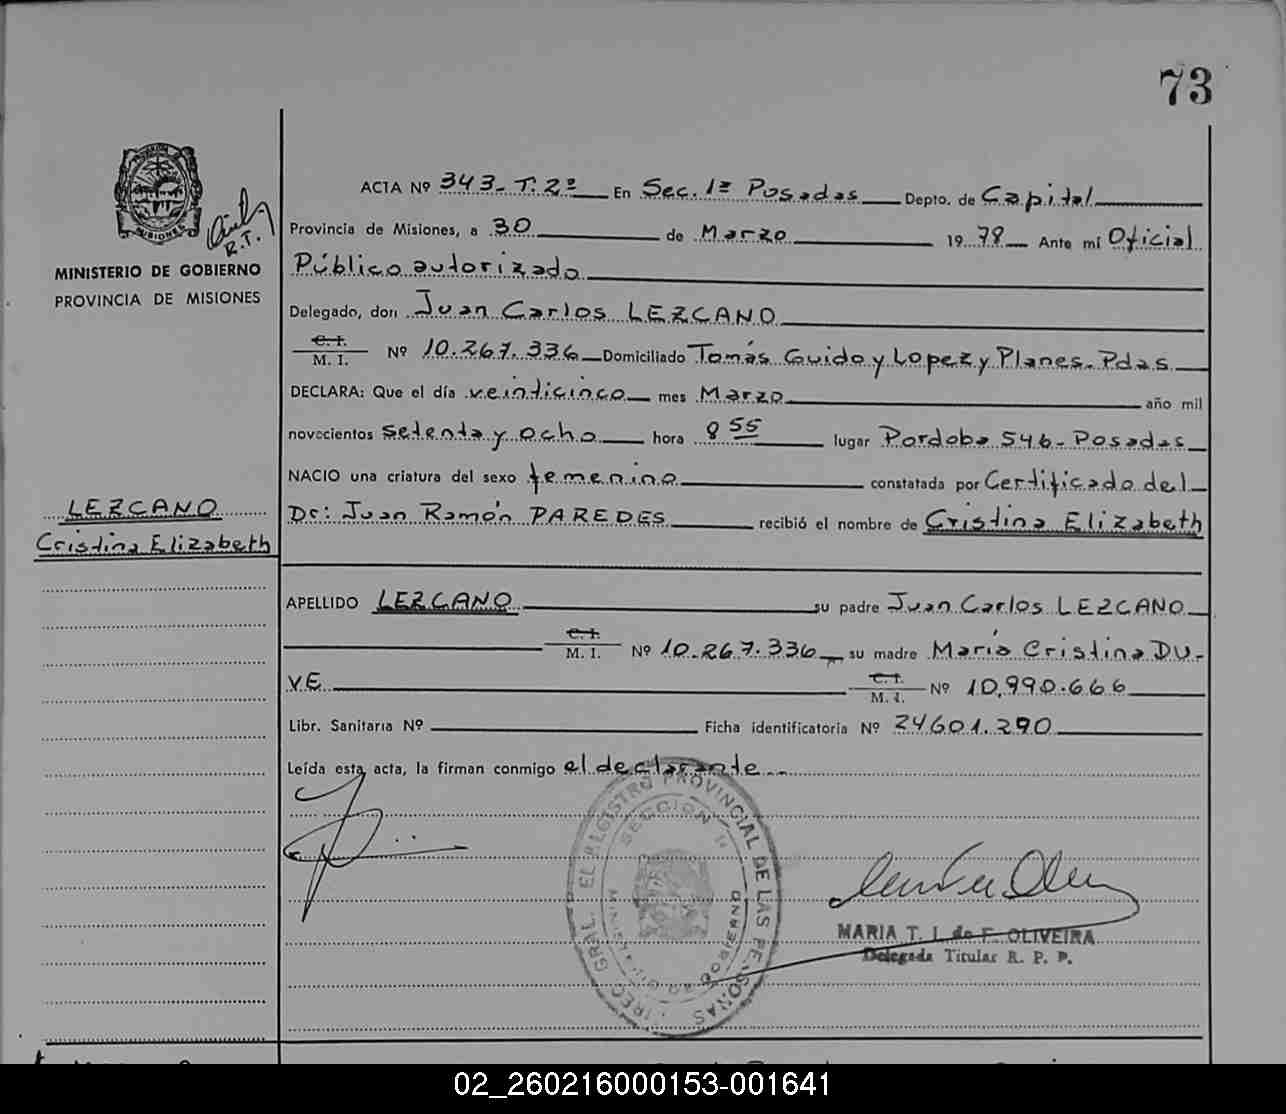 73
ACTA Nº 343-T: 2º En Sec. 1ª Posadas Depto. de Capital
Provincia de Misiones, a 30 de Marzo 1978 Ante mí Oficial
Público autorizado
R.T.
MINISTERIO DE GOBIERNO
PROVINCIA DE MISIONES
Delegado, don Juan Carlos LEZCANO
C. I.
M. I. Nº 10.267.336 Domiciliado Tomás Guido y Lopez y Planes. Pdas
DECLARA: Que el día veinticinco mes Marzo año mil
novecientos setenta y ocho hora 8 55 lugar Pordoba 546- Posadas
NACIO una criatura del sexo femenino constatada por Certificado del
Dr: Juan Ramón PAREDES recibió el nombre de Cristina Elizabeth
LEZCANO
Cristina Elizabeth
APELLIDO LEZCANO su padre Juan Carlos LEZCANO
C. I.
M. I. Nº 10.267.336 su madre María Cristina DU-
VE C. I.
M. I. Nº 10.990.666
Libr. Sanitaria Nº Ficha identificatoria Nº 24601.290
Leída esta acta, la firman conmigo el declarante
REGISTRO PROVINCIAL DE LAS PERSONAS
SECCION 1ª
MARIA T. I. de F. OLIVEIRA
Delegada Titular R. P. P.
02_260216000153-001641